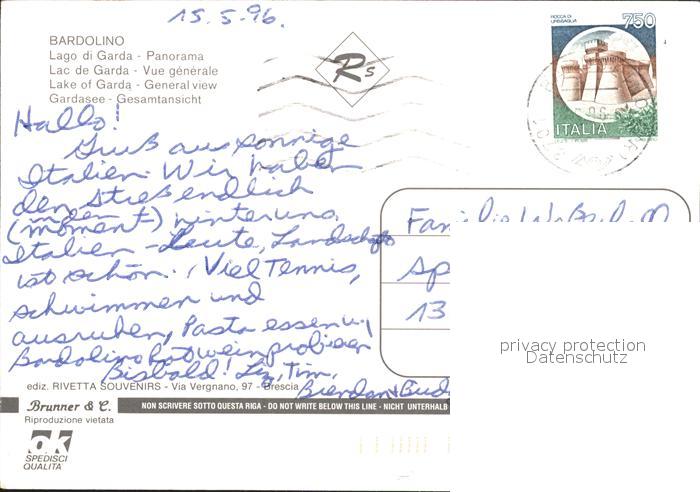 15.5.96.
BARDOLINO
Lago di Garda - Panorama
Lac de Garda - Vue générale
Lake of Garda - General view
Gardasee - Gesamtansicht
Rs
ROCCA DI URBISAGLIA
750
ITALIA
Hallo!
Gruß aus sonnige
Italien. Wir haben
den Streß endlich
(im den moment) hinter uns.
Italien - Leute, Landschaft
ist schön. Viel Tennis,
schwimmen und
ausruhen, Pasta essen u.
Bardolino Rotwein probieren
Bisbald! Liz, Tim,
Brendan &
Familie
Sp
13
privacy protection
Datenschutz
ediz. RIVETTA SOUVENIRS - Via Vergnano, 97 - Brescia
Brunner & C.
NON SCRIVERE SOTTO QUESTA RIGA - DO NOT WRITE BELOW THIS LINE - NICHT UNTERHALB
Riproduzione vietata
ok
SPEDISCI
QUALITA'